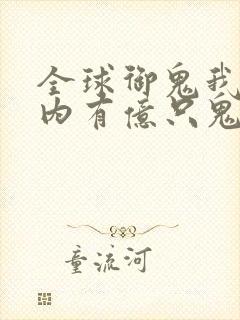 全球御鬼我
内有億只鬼
童流河